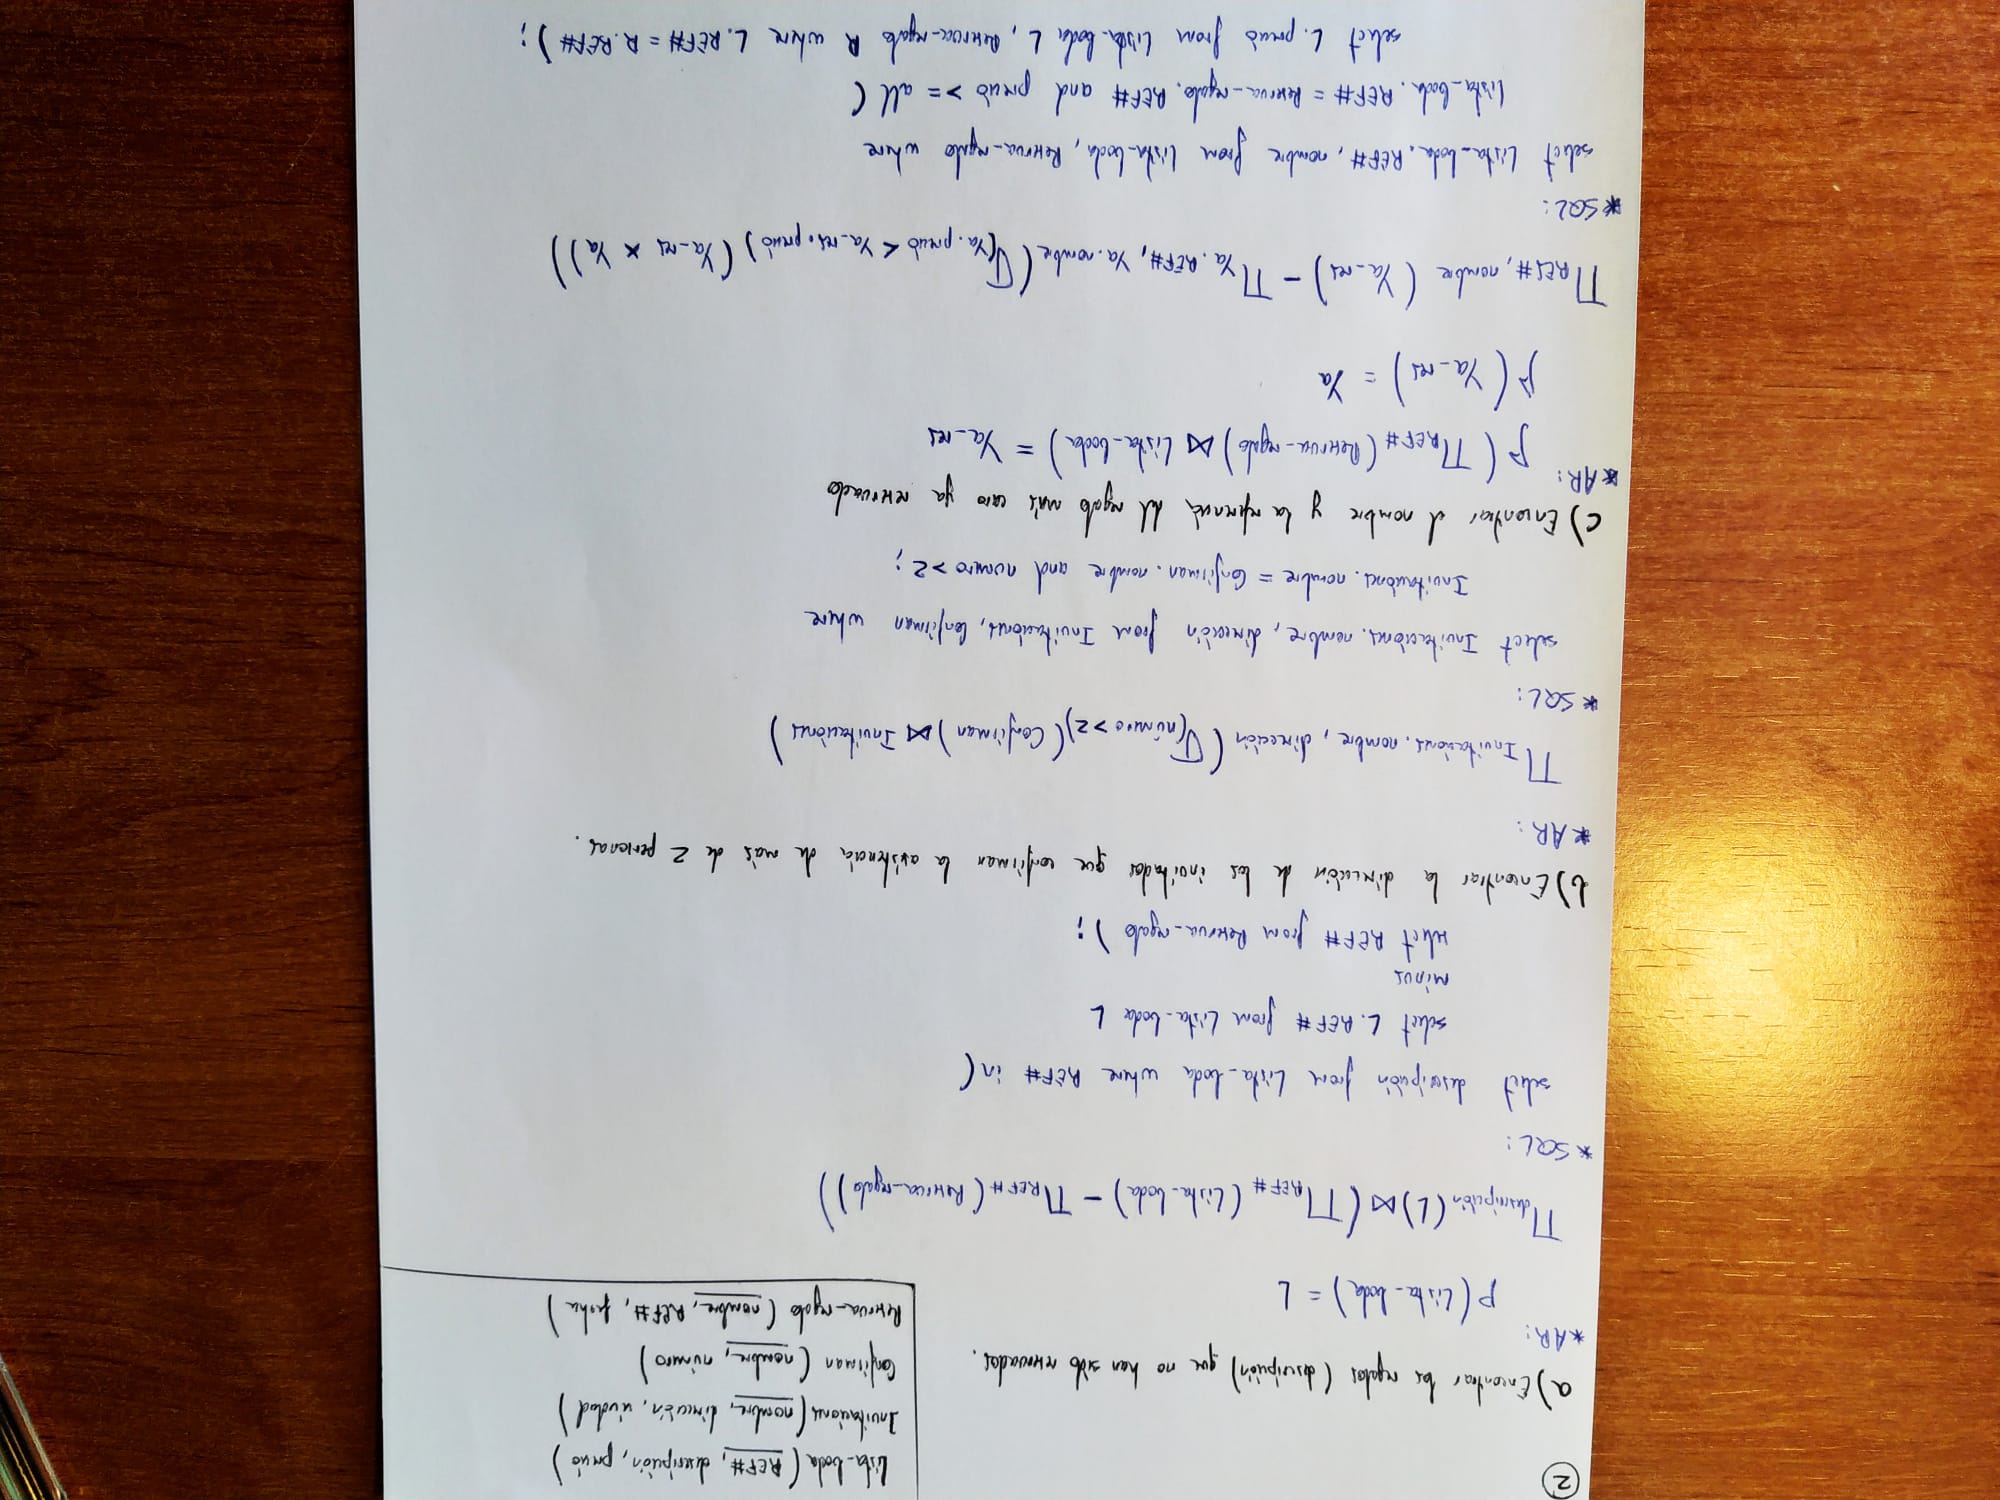 ②
Lista-boda (REF#, descripción, precio)
Invitaciones (nombre, dirección, ciudad)
Confirman (nombre, número)
Reserva-regalo (nombre, REF#, fecha)
a) Encontrar los regalos (descripción) que no han sido reservados.
*AR:
ρ(Lista-boda) = L
Π descripción (L) ⋈ (Π REF# (Lista-boda) - Π REF# (Reserva-regalo))
*SQL:
select descripción from Lista-boda where REF# in (
select L.REF# from Lista-boda L
minus
select REF# from Reserva-regalo);
b) Encontrar la dirección de los invitados que confirman la asistencia de más de 2 personas.
*AR:
Π Invitaciones.nombre, dirección (σ(número>2)(Confirman) ⋈ Invitaciones)
*SQL:
select Invitaciones.nombre, dirección from Invitaciones, Confirman where
Invitaciones.nombre = Confirman.nombre and numero>2;
c) Encontrar el nombre y la referencia del regalo más caro ya reservado
*AR:
ρ(Π REF# (Reserva-regalo) ⋈ Lista-boda) = Ya-res
ρ(Ya-res) = Ya
Π REF#, nombre (Ya-res) - Π Ya.REF#, Ya.nombre (σ(Ya.precio < Ya-res.precio) (Ya-res × Ya))
*SQL:
select Lista-boda.REF#, nombre from Lista-boda, Reserva-regalo where
Lista-boda.REF# = Reserva-regalo.REF# and precio >= all (
select L.precio from Lista-boda L, Reserva-regalo R where L.REF# = R.REF#);